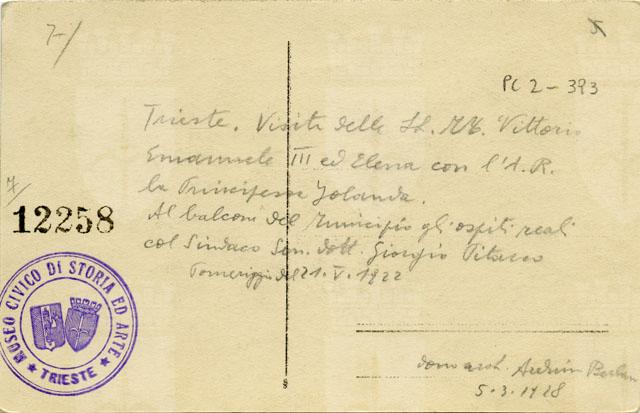 7-/
PC 2 - 393
Trieste. Visita delle LL. MM. Vittorio
Emanuele III ed Elena con l'A. R.
la Principessa Jolanda.
Al balcone del Municipio gli ospiti reali
col Sindaco Sen. dott. Giorgio Pitacco
Pomeriggio del 21. V. 1922
12258
MUSEO CIVICO DI STORIA ED ARTE
TRIESTE
dono arch.
5.3.1928